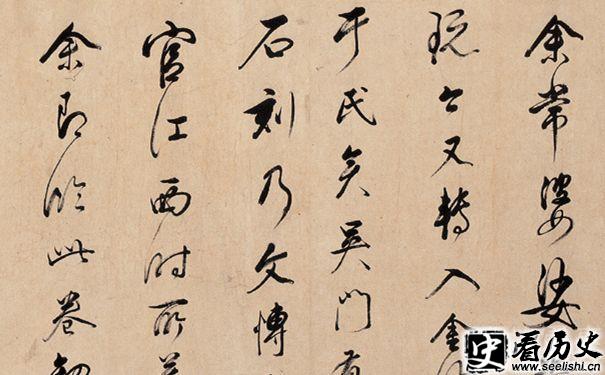 余常婆娑
玩之又转入金
于氏矣吴门有
石刻乃文博
官江西时所
余即临此卷
看历史
www.seelishi.cn